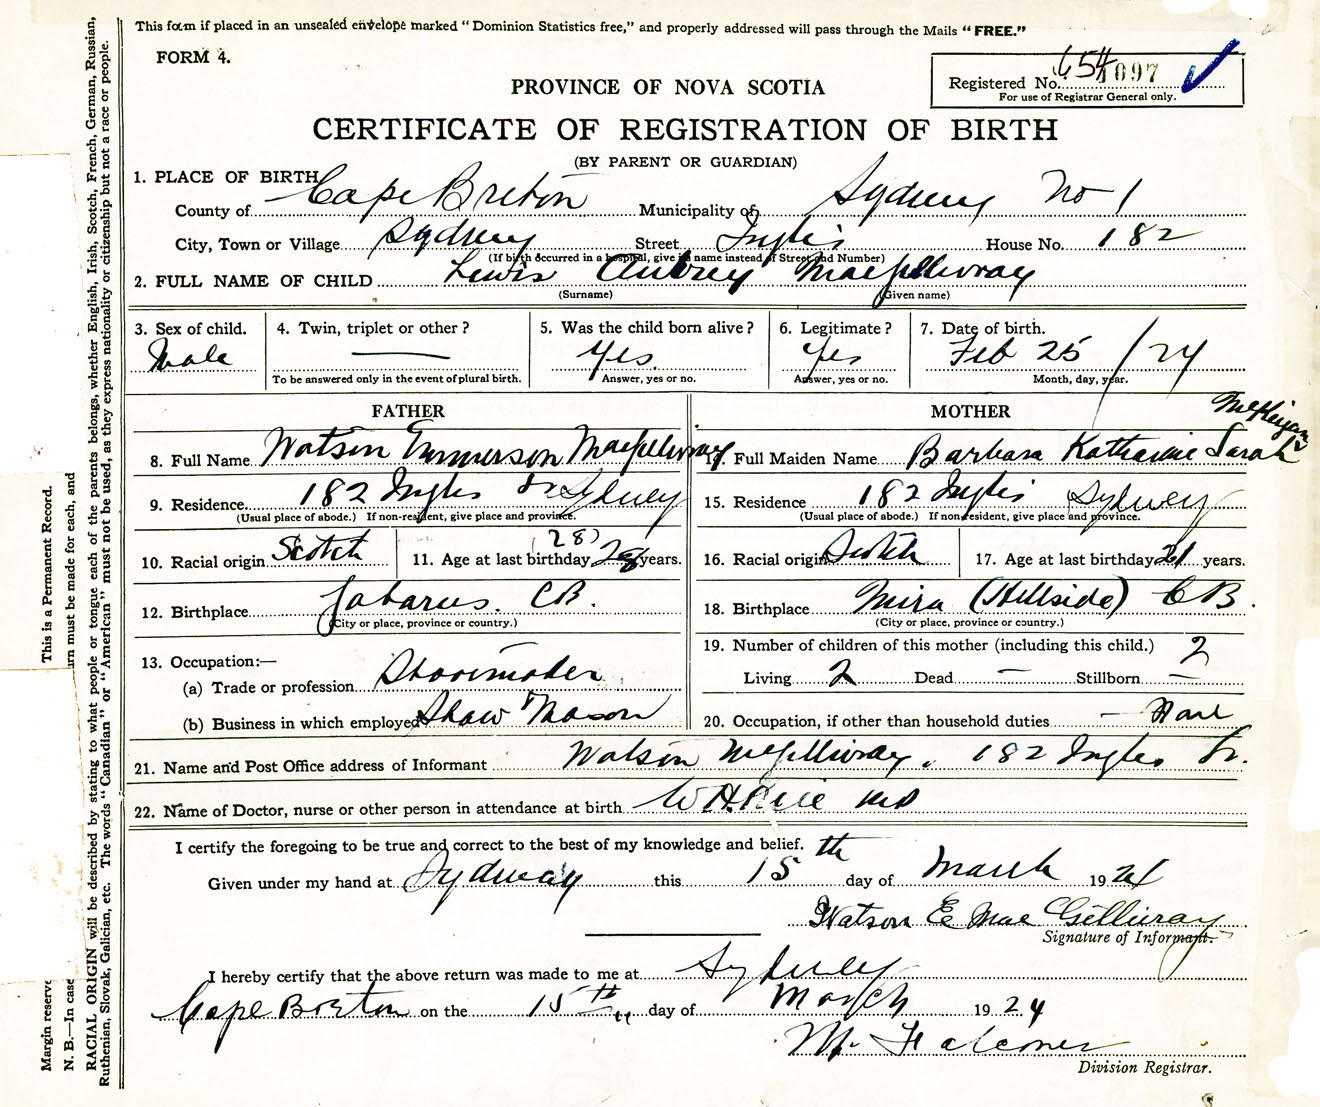 This form if placed in an unsealed envelope marked "Dominion Statistics free," and properly addressed will pass through the Mails "FREE."
FORM 4.
Registered No. 654 1097
For use of Registrar General only.
PROVINCE OF NOVA SCOTIA
CERTIFICATE OF REGISTRATION OF BIRTH
(BY PARENT OR GUARDIAN)
1. PLACE OF BIRTH
County of Cape Breton Municipality of Sydney No 1
City, Town or Village Sydney Street Inglis House No. 182
(If birth occurred in a hospital, give its name instead of Street and Number)
2. FULL NAME OF CHILD Lewis Aubrey MacGillivray
(Surname) (Given name)
3. Sex of child. 4. Twin, triplet or other? 5. Was the child born alive? 6. Legitimate? 7. Date of birth.
Male — Yes. Yes Feb 25 /24
To be answered only in the event of plural birth. Answer, yes or no. Answer, yes or no. Month, day, year.
FATHER
8. Full Name Watson Emmerson MacGillivray
9. Residence 182 Ingles St Sydney
(Usual place of abode.) If non-resident, give place and province.
(28)
10. Racial origin Scotch 11. Age at last birthday 28 years.
12. Birthplace Gabarus. CB.
(City or place, province or country.)
13. Occupation:—
(a) Trade or profession
(b) Business in which employed Shaw & Mason
MOTHER
McKeigan
14. Full Maiden Name Barbara Katharine Sarah
15. Residence 182 Inglis Sydney
(Usual place of abode.) If non-resident, give place and province.
16. Racial origin Scotch 17. Age at last birthday 21 years.
18. Birthplace Mira (Hillside) CB.
(City or place, province or country.)
19. Number of children of this mother (including this child.) 2
Living 2 Dead — Stillborn —
20. Occupation, if other than household duties —
21. Name and Post Office address of Informant Watson McGillivray, 182 Ingles St.
22. Name of Doctor, nurse or other person in attendance at birth W.H. Rice MD
I certify the foregoing to be true and correct to the best of my knowledge and belief.
Given under my hand at Sydney this 15th day of March 1924
Watson E MacGillivray
Signature of Informant.
I hereby certify that the above return was made to me at Sydney
Cape Breton on the 15th day of March 1924
M. Falconer
Division Registrar.
Margin reserve This is a Permanent Record.
N. B.—In case urn must be made for each, and
RACIAL ORIGIN will be described by stating to what people or tongue each of the parents belongs, whether English, Irish, Scotch, French, German, Russian,
Ruthenian, Slovak, Galician, etc. The words "Canadian" or "American" must not be used, as they express nationality or citizenship but not a race or people.